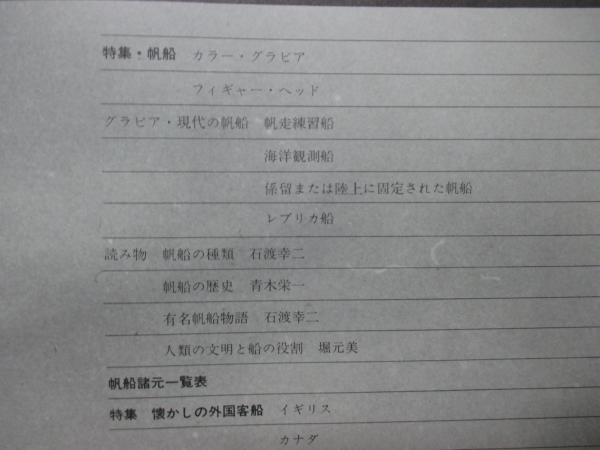 特集・帆船 カラー・グラビア
フィギャー・ヘッド
グラビア・現代の帆船 帆走練習船
海洋観測船
係留または陸上に固定された帆船
レプリカ船
読み物 帆船の種類 石渡幸二
帆船の歴史 青木栄一
有名帆船物語 石渡幸二
人類の文明と船の役割 堀元美
帆船諸元一覧表
特集 懐かしの外国客船 イギリス
カナダ